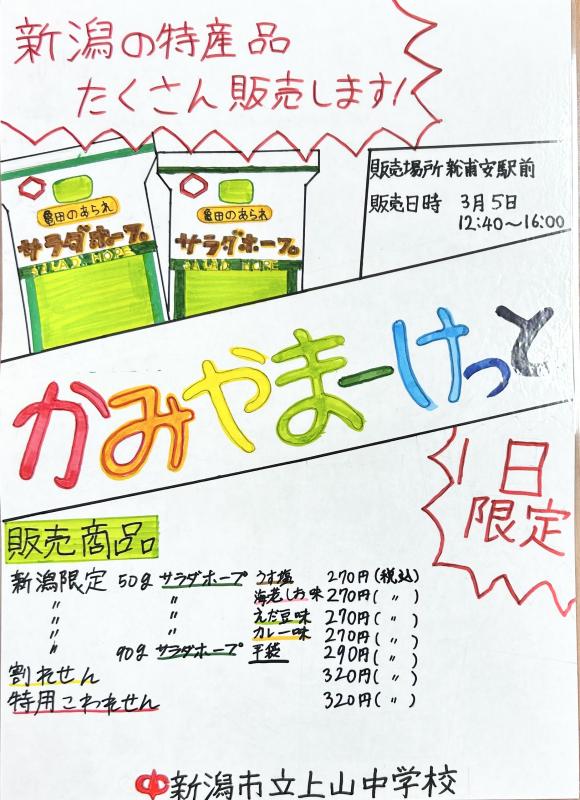 新潟の特産品
たくさん販売します!
亀田のあられ
サラダホープ
SALAD HOPE
亀田のあられ
サラダホープ
SALAD HOPE
販売場所 新浦安駅前
販売日時 3月5日
12:40〜16:00
かみやまーけっと
1日
限定
販売商品
新潟限定 50g サラダホープ うす塩 270円(税込)
〃 〃 海老しお味 270円(〃)
〃 〃 えだ豆味 270円(〃)
〃 〃 カレー味 270円(〃)
〃 90g サラダホープ 平袋 290円(〃)
割れせん 320円(〃)
特用こわれせん 320円(〃)
新潟市立上山中学校